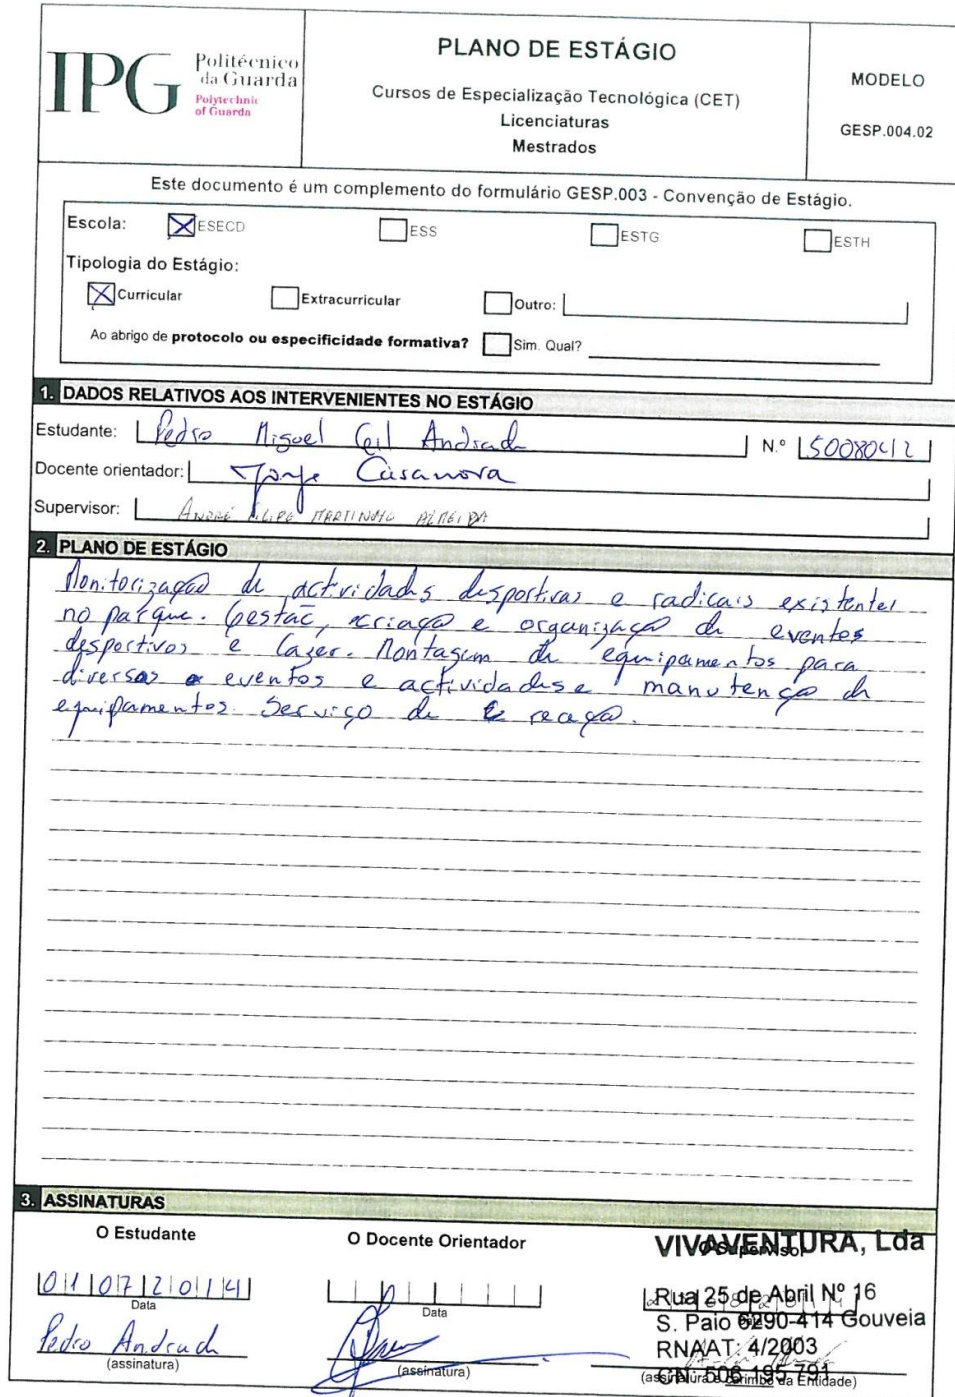 IPG Politécnico
da Guarda
Polytechnic
of Guarda
PLANO DE ESTÁGIO
Cursos de Especialização Tecnológica (CET)
Licenciaturas
Mestrados
MODELO
GESP.004.02
Este documento é um complemento do formulário GESP.003 - Convenção de Estágio.
Escola: ESECD ESS ESTG ESTH
Tipologia do Estágio:
Curricular Extracurricular Outro:
Ao abrigo de protocolo ou especificidade formativa? Sim. Qual?
1. DADOS RELATIVOS AOS INTERVENIENTES NO ESTÁGIO
Estudante: Pedro Miguel Gil Andrade N.º
Docente orientador: Jorge Casanova
Supervisor: ANDRÉ FILIPE MARTINHO ALMEIDA
2. PLANO DE ESTÁGIO
Monitorização de actividades desportivas e radicais existentes
no parque. Gestão, criação e organização de eventos
desportivos e lazer. Montagem de equipamentos para
diversos eventos e actividades e manutenção de
equipamentos. Serviço de
3. ASSINATURAS
O Estudante O Docente Orientador O Supervisor
VIVAVENTURA, Lda
01 07 2014
Data Data
Rua 25 de Abril Nº 16
S. Paio 6290-414 Gouveia
RNAAT: 4/2003
CN: 506 195 791
Pedro Andrade
(assinatura) (assinatura) (assinatura e carimbo da Entidade)